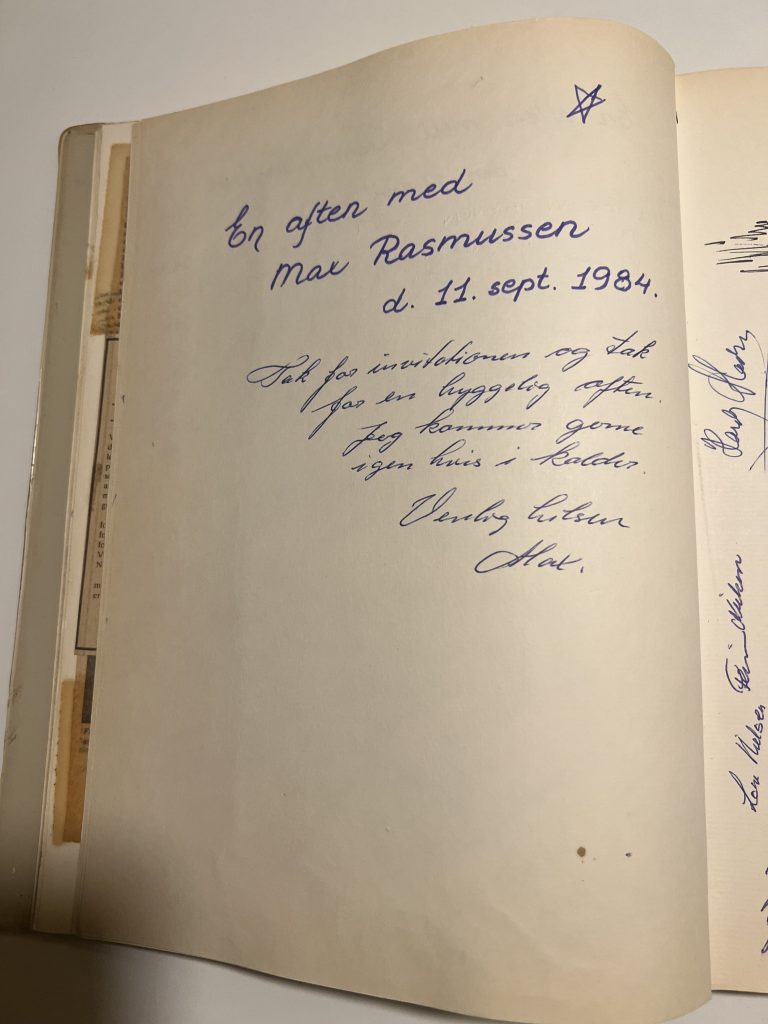 En aften med
Max Rasmussen
d. 11. sept. 1984.
Tak for invitationen og tak
for en hyggelig aften.
Jeg kommer gerne
igen hvis i kalder.
Venlig hilsen
Max.
Nielsen